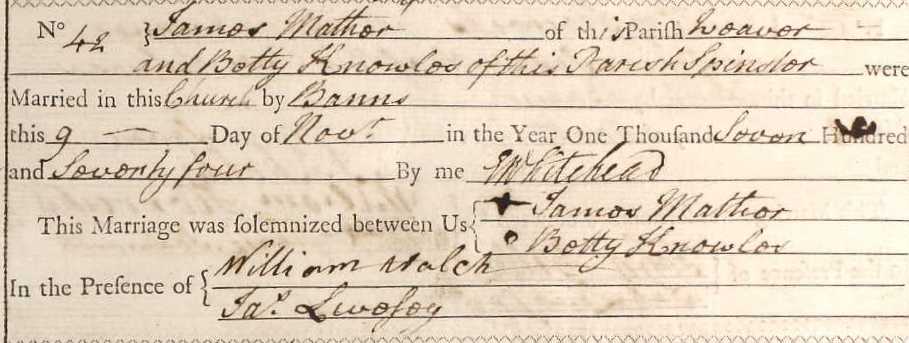 No 42 James Mather of this Parish Weaver
and Betty Knowles of this Parish Spinster were
Married in this Church by Banns
this 9 — Day of Novr. in the Year One Thousand Seven Hundred
and Seventy four By me Whitehead
This Marriage was solemnized between Us { + James Mather
Betty Knowles
In the Presence of { William Walch
Jas. Livesey